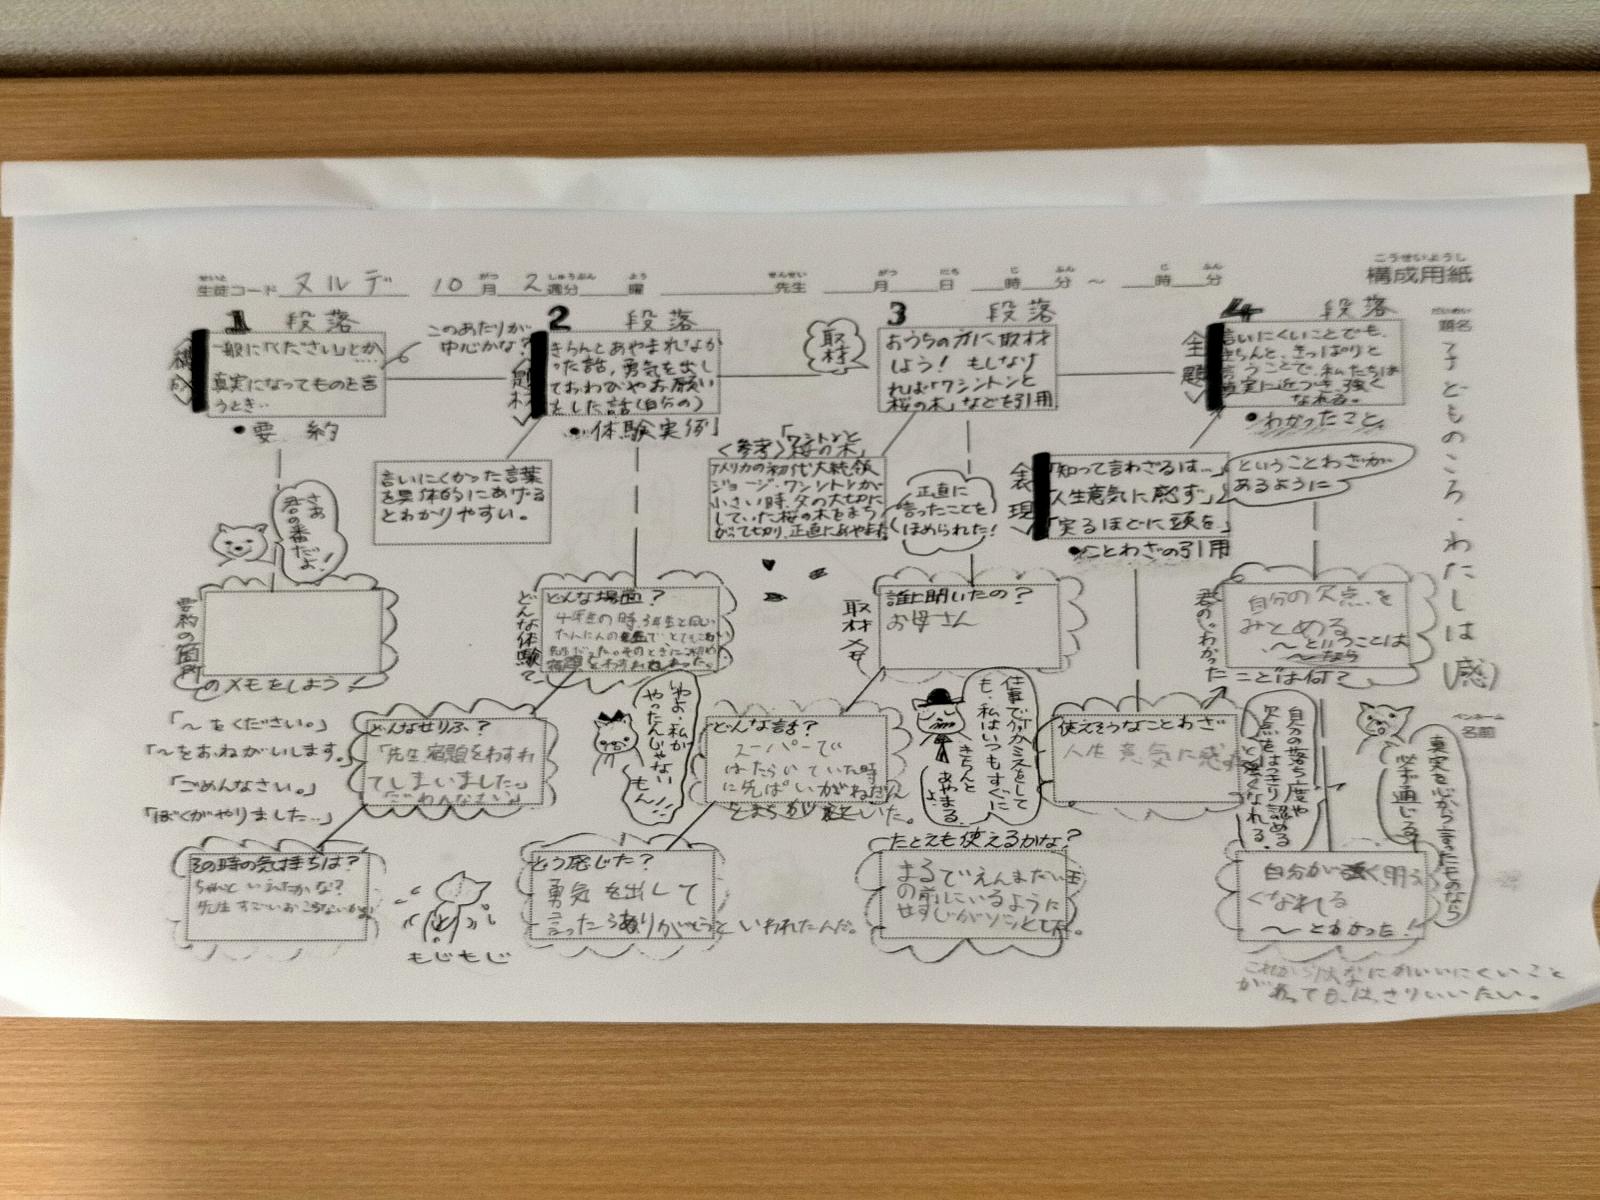 こうせいようし
構成用紙
せいと
生徒コード ヌルデ 10月 2週分 曜 先生 月 日 時 分 ～ 時 分
がつ しゅうぶん よう せんせい がつ にち じ ふん じ ふん
だいめい
題名
子どものころ、わたしは(感)
ペンネーム
名前
1 段落
構成
一般に「ください」とか
真実になってものを言
うとき‥
●要約
このあたりが
中心かな?
2 段落
題材
きちんとあやまれなか
った話,勇気を出し
ておわびやお願い
をした話(自分の)
●体験実例」
3 段落
取材
おうちの方に取材
しよう! もしなけ
れば「ワシントンと
桜の木」などを引用
4 段落
全
題
言いにくいことでも、
きちんと、きっぱりと
言うことで、私たちは
真実に近づき、強く
なれる。
●わかったこと
言いにくかった言葉
を具体的にあげる
とわかりやすい。
<参考>「ワシントンと
桜の木」
アメリカの初代大統領
ジョージ・ワシントンが
小さい時、父の大切に
していた桜の木をまち
がって切り、正直にあやまった
正直に
言ったことを
ほめられた!
表現
「知って言わざるは…」
「人生意気に感ず」
「実るほどに頭を」
●ことわざの引用
ということわざが
あるように
さあ
君の番だよ!
要約の箇所
のメモをしよう
「～をください。」
「～をおねがいします。」
「ごめんなさい。」
「ぼくがやりました…」
どんな体験で
どんな場面?
4年生の時、3年生と同じ
たんにんの先生で とてもこわい
先生だった。そのときに
宿題をわすれ
どんなせりふ?
「先生宿題をわすれ
てしまいました。
ごめんなさい」
その時の気持ちは?
ちゃんといえたかな?
先生すごいおこらないかな
もじもじ
いやよ、私が
やったんじゃない
もん!!!
どう感じた?
勇気を出して
言ったらありがとうと いわれたんだ。
取材メモ
誰に聞いたの?
お母さん
どんな話?
スーパーで
はたらいていた時
に先ぱいがねだん
をまちがえていた。
仕事でミスをして
も、私はいつもすぐに
きちんと
あやまる
よ。
たとえも使えるかな?
まるでえんまだい王
の前にいるように
せすじがゾッとした。
使えそうなことわざ
人生意気に感ず
君の「わかった
ことは何?
自分の欠点を
みとめる
～ということは
～なら
自分の落ち度や
欠点をはっきり認める
と強くなれる。
真実を心から言ったものなら
必ず通じる
自分が強く、明る
くなれてる
～とわかった!
これからはなにかいいにくいこと
があっても、はっきりいいたい。